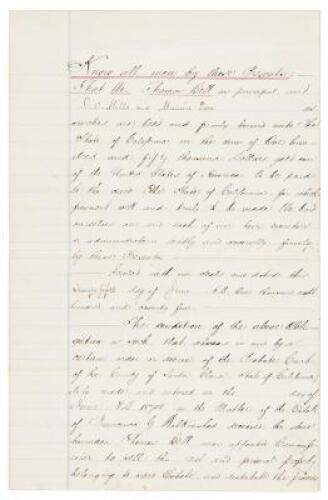 Know all men by these Presents:
That We Thomas Bell as principal, and
D. O. Mills and Maurice Dore as
sureties are held and firmly bound unto The
State of California in the sum of
and fifty thousand Dollars gold coin
of the United States of America to be paid
to the said The State of California for which
payment well and truly to be made We bind
ourselves our and each of our heirs executors
or administrators jointly and severally firmly
by these Presents
Sealed with our seals and dated this
Twenty fifth day of June A.D. One thousand eight
hundred and seventy five
The condition of the above Obli-
gation is such that whereas in and by a
certain order or decree of the Probate Court
of the County of Santa Clara State of California
duly made and entered on the day of
June A.D. 1875 in the Matter of the Estate
of deceased the above
bounden Thomas Bell was appointed Commis-
sioner to sell the real and personal property
belonging to said Estate and distribute the